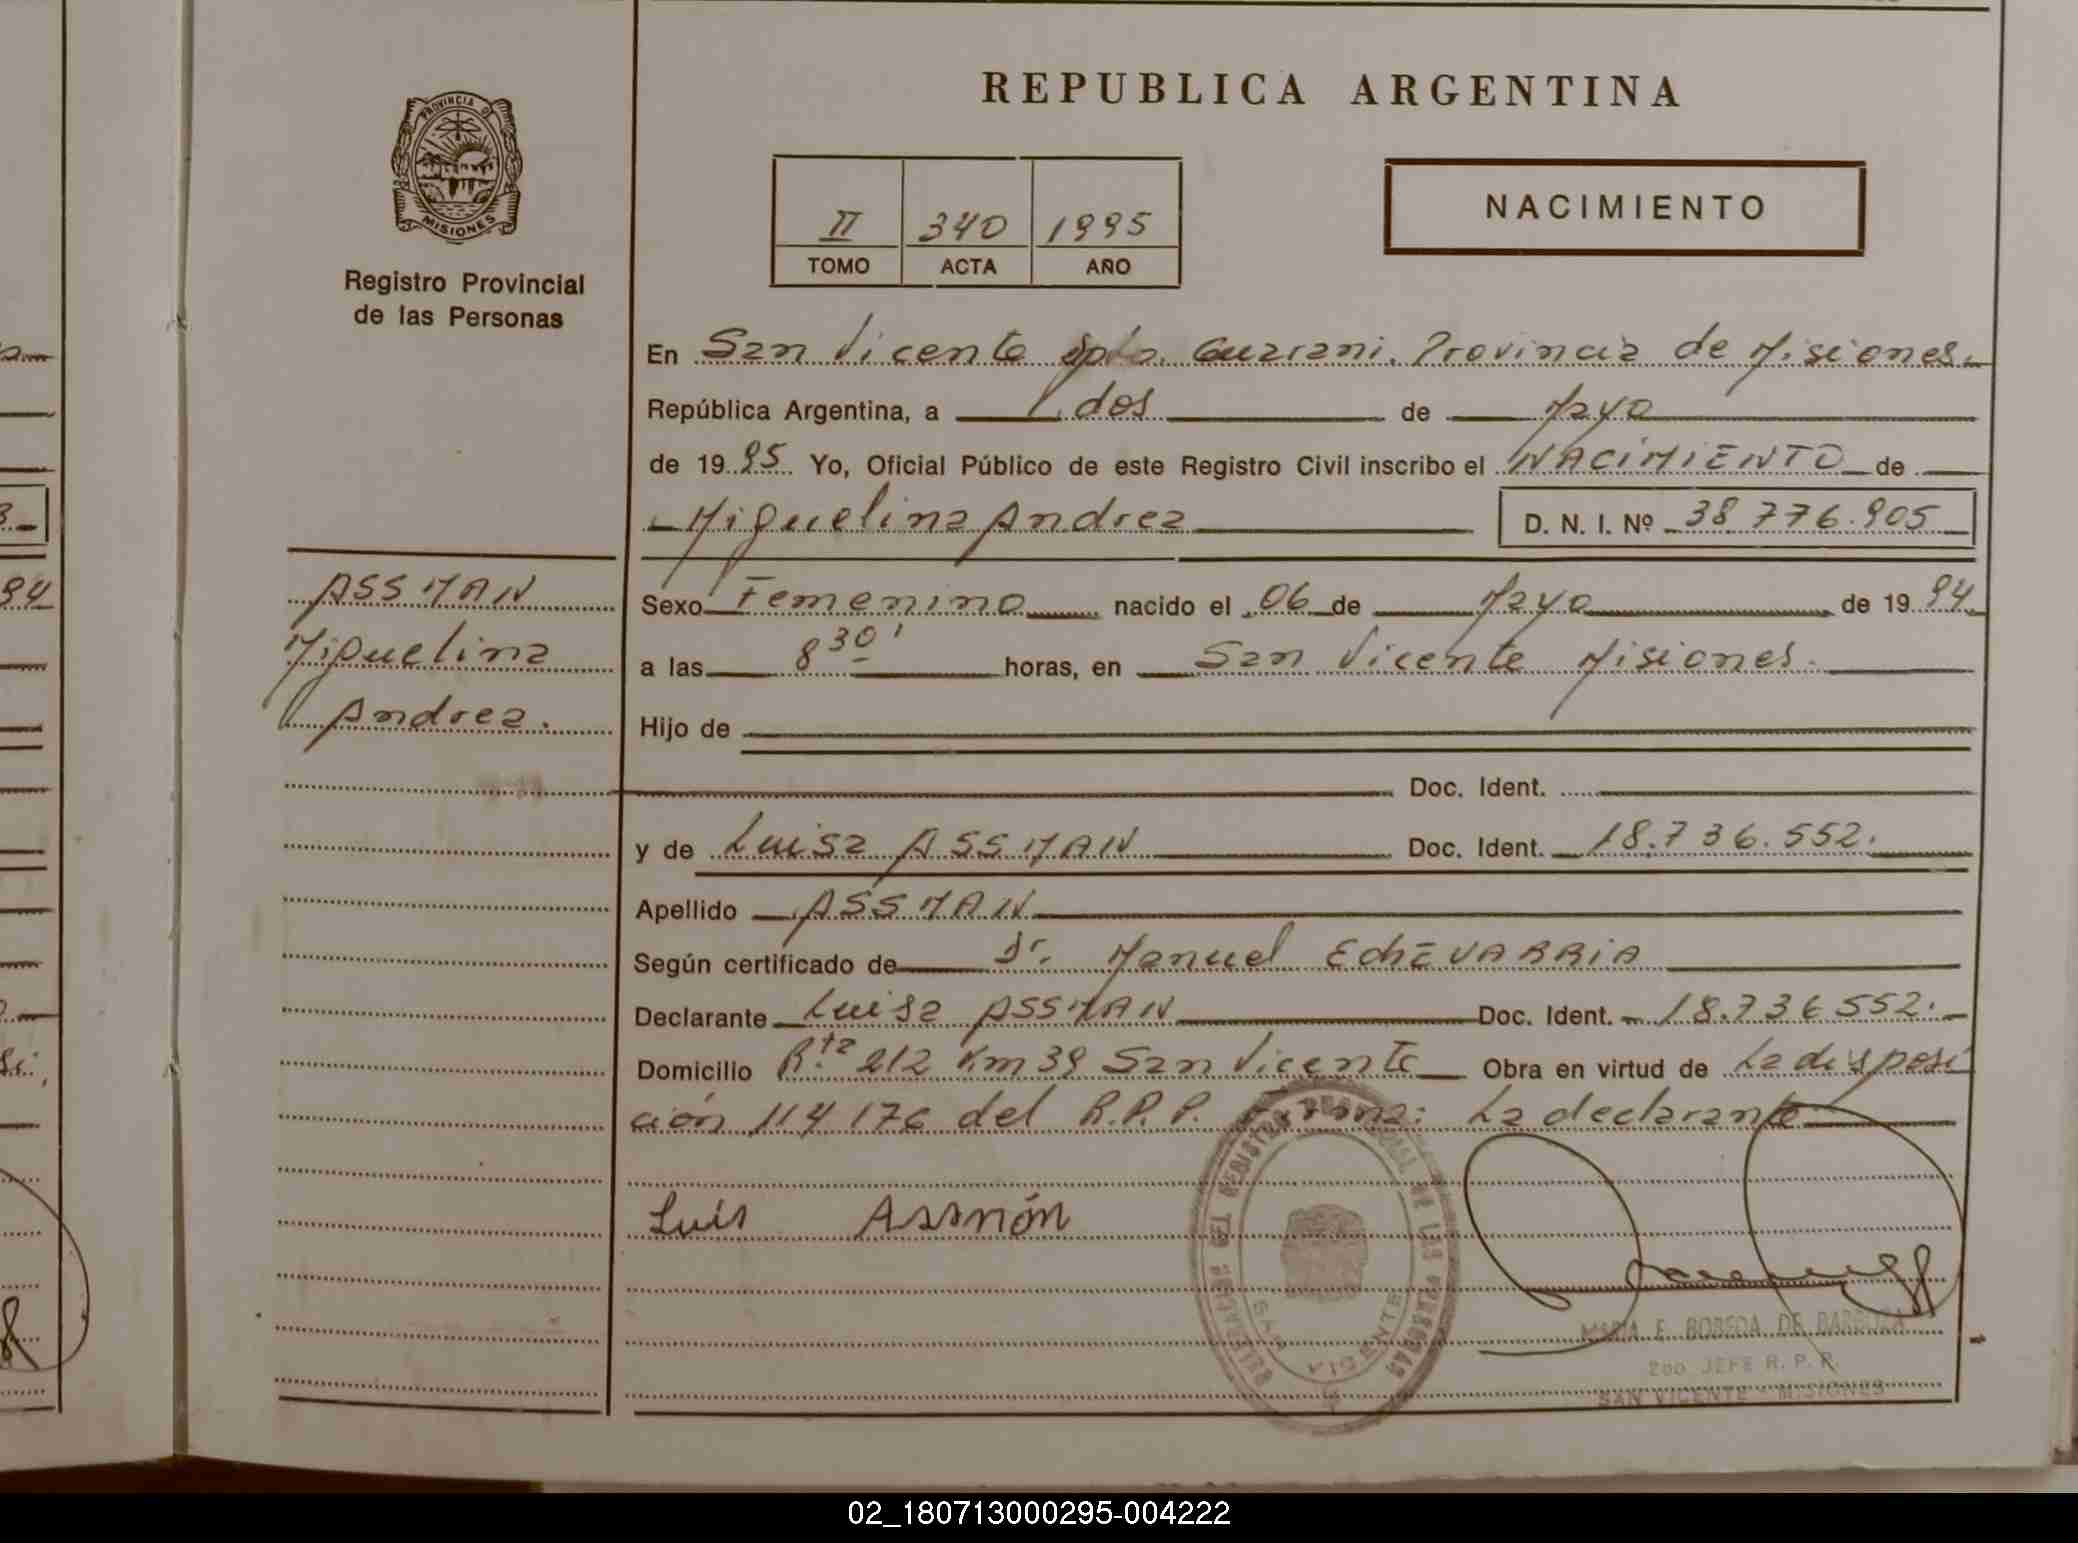 REPUBLICA ARGENTINA
PROVINCIA D
MISIONES
Registro Provincial
de las Personas
II 340 1995
TOMO ACTA AÑO
NACIMIENTO
En San Vicente Dpto. Guarani. Provincia de Misiones.
República Argentina, a dos de Mayo
de 19 95 Yo, Oficial Público de este Registro Civil inscribo el NACIMIENTO de
Miguelina Andrea D. N. I. Nº 38 776.905
ASSMAN
Miguelina
Andrea.
Sexo Femenino nacido el 06 de Mayo de 19 94
a las 8 30' horas, en San Vicente Misiones.
Hijo de
Doc. Ident.
y de Luisa ASSMAN Doc. Ident. 18.736.552.
Apellido ASSMAN
Según certificado de Dr. Manuel EchEVARRiA
Declarante Luisa ASSMAN Doc. Ident. 18.736 552.
Domicilio Rta 212 Km 39 San Vicente Obra en virtud de La disposi
ción 114 176 del R.P.P. Firma: La declarante
Luis Assmón
DEL REGISTRO PROVINCIAL DE LAS PERSONAS
SAN VICENTE
MARIA E. BOBEDA DE BARBOZA
2do JEFE R. P. P.
SAN VICENTE - MISIONES
94
02_180713000295-004222